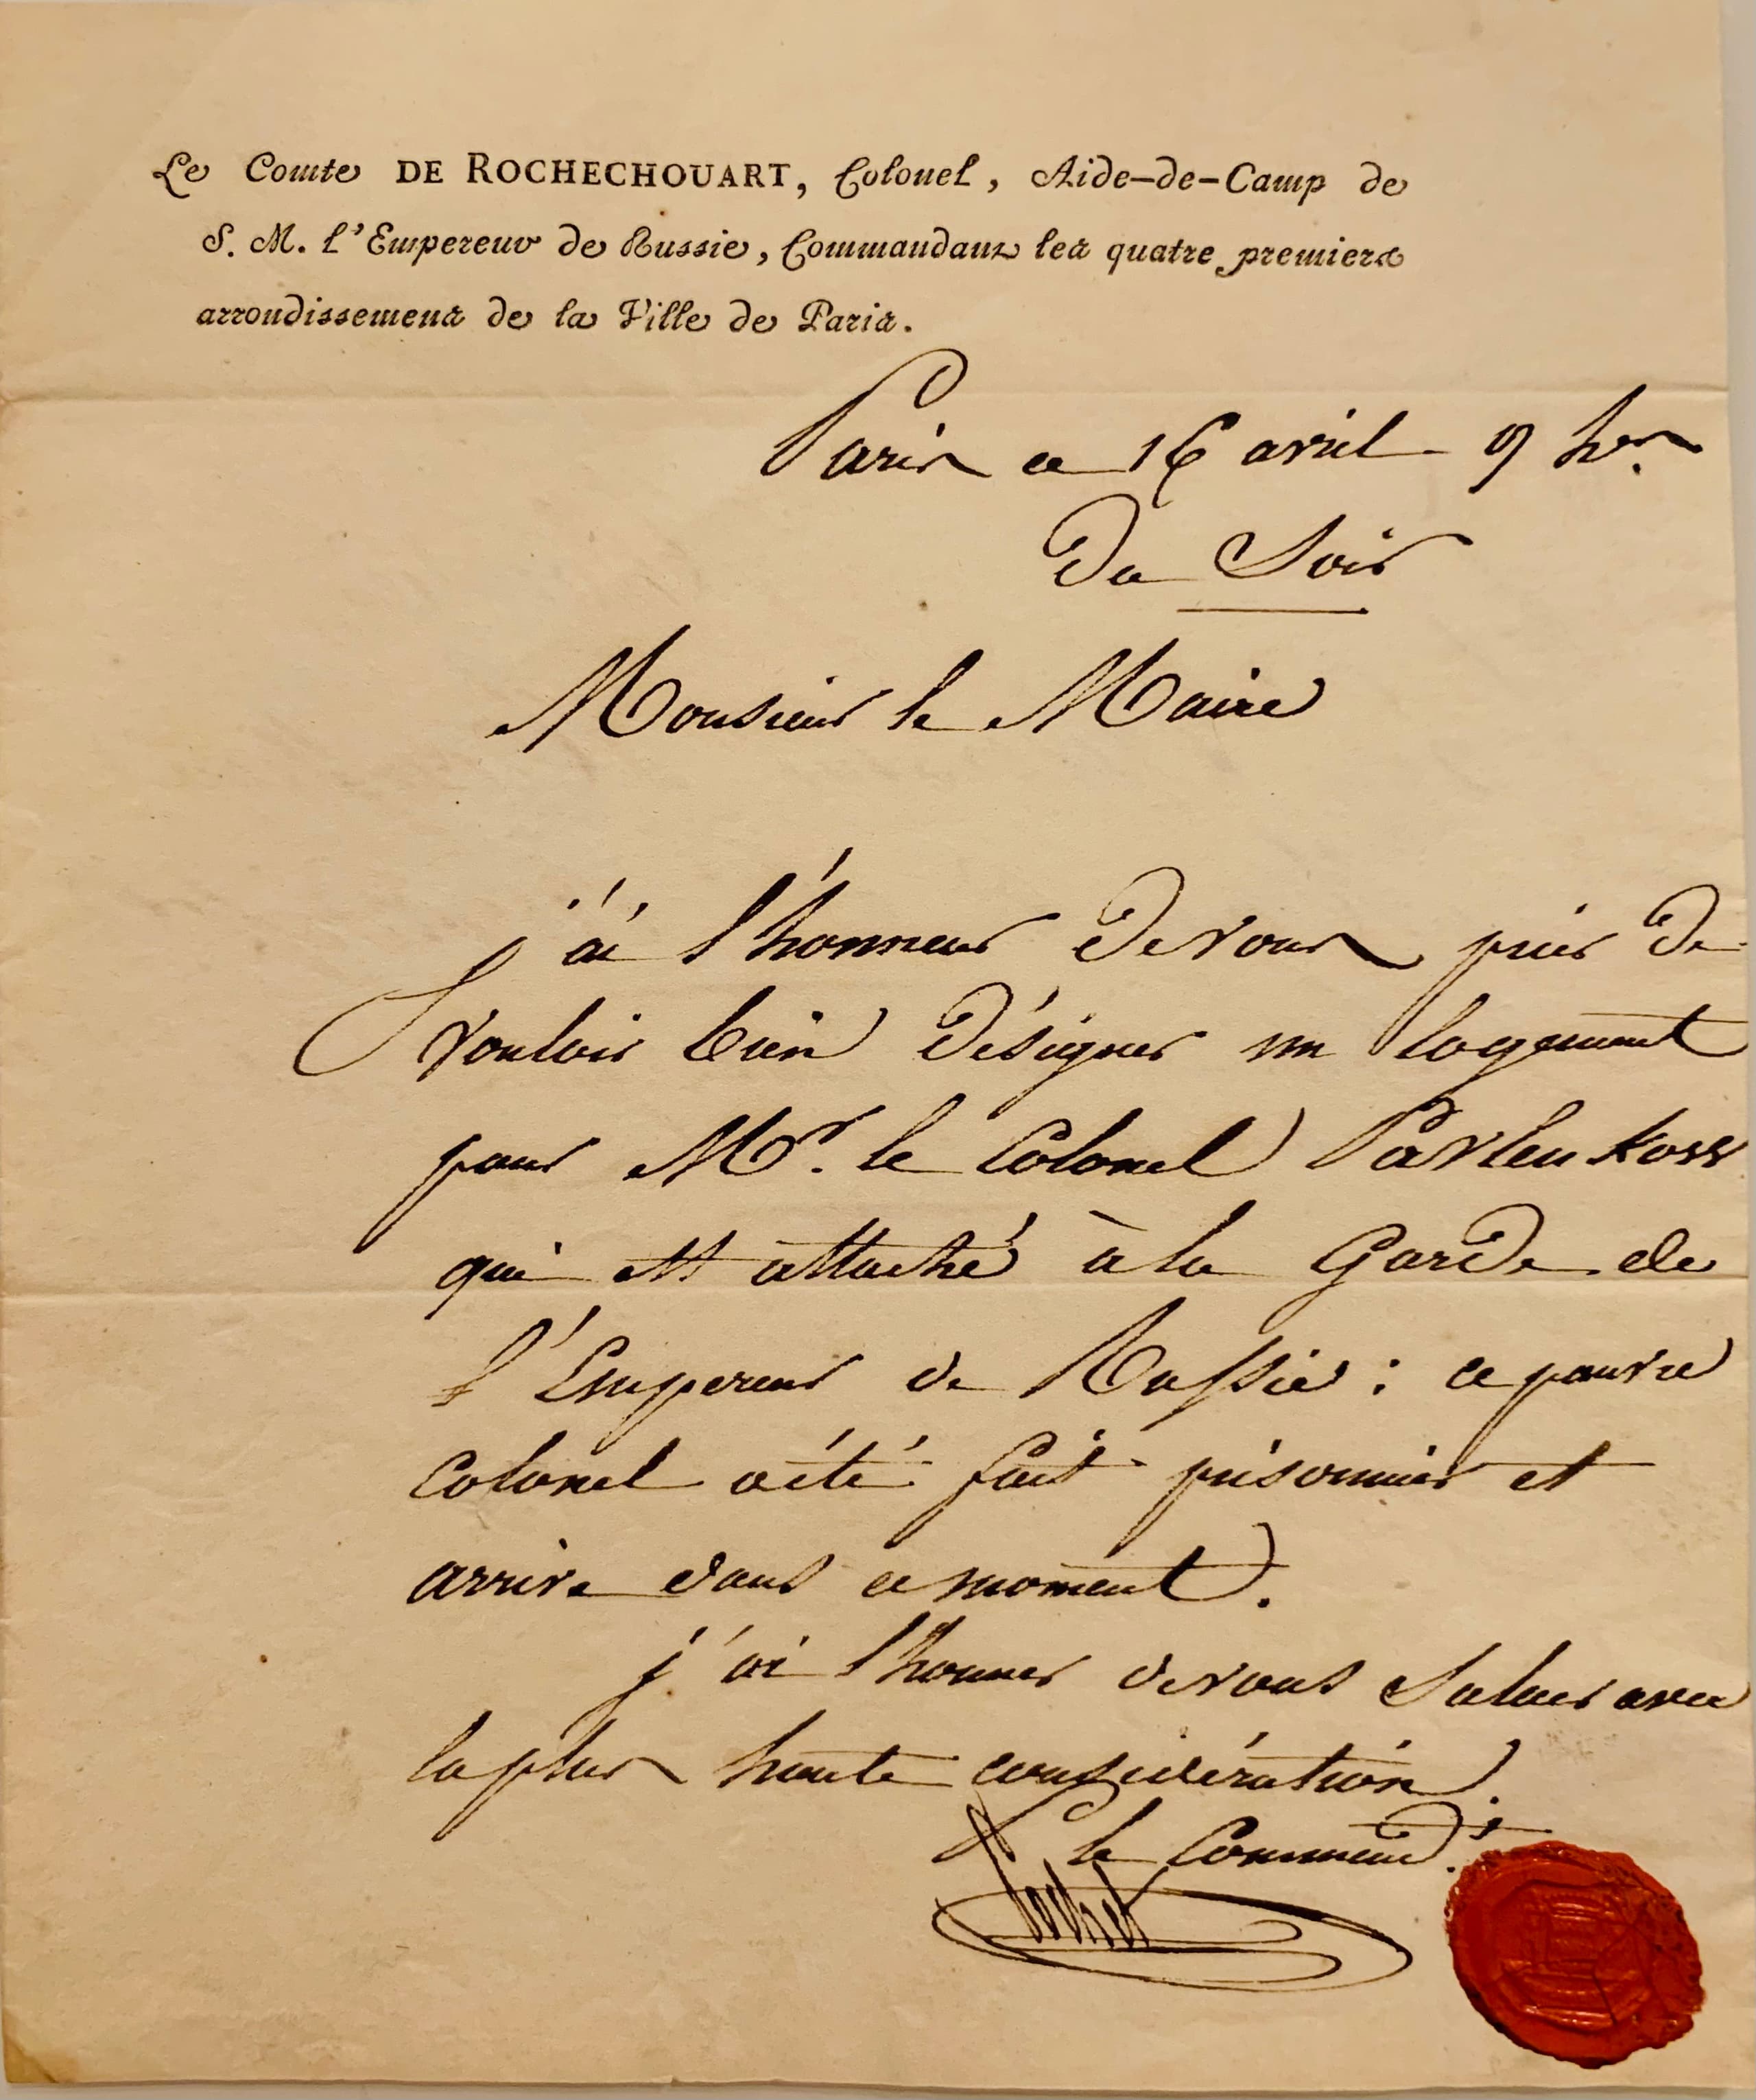 Le Comte DE ROCHECHOUART, Colonel, Aide-de-Camp de
S. M. l'Empereur de Russie, Commandant les quatre premiers
arrondissemens de la Ville de Paris.
Paris ce 16 avril 9 hres
du Soir
Monsieur le Maire
j'ai l'honneur de vous prier de
vouloir bien désigner un logement
pour Mr. le Colonel Pavlenkoff
qui est attaché à la Garde de
l'Empereur de Russie : ce pauvre
Colonel a été fait prisonnier et
arrive dans ce moment.
j'ai l'honneur de vous Saluer avec
la plus haute considération.
le Command.t